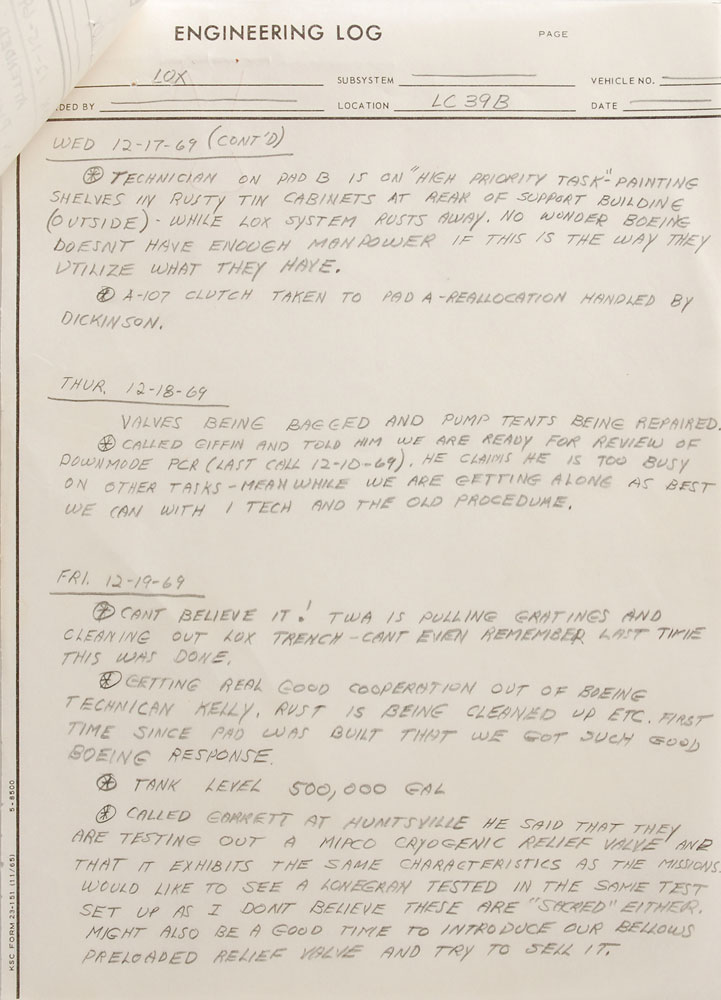 ENGINEERING LOG
PAGE
LOX SUBSYSTEM VEHICLE NO.
DED BY LOCATION LC 39B DATE
WED 12-17-69 (CONT'D)
* TECHNICIAN ON PAD B IS ON "HIGH PRIORITY TASK"-PAINTING
SHELVES IN RUSTY TIN CABINETS AT REAR OF SUPPORT BUILDING
(OUTSIDE) - WHILE LOX SYSTEM RUSTS AWAY. NO WONDER BOEING
DOESNT HAVE ENOUGH MANPOWER IF THIS IS THE WAY THEY
UTILIZE WHAT THEY HAVE.
* A-107 CLUTCH TAKEN TO PAD A - REALLOCATION HANDLED BY
DICKINSON.
THUR. 12-18-69
VALVES BEING BAGGED AND PUMP TENTS BEING REPAIRED.
* CALLED GIFFIN AND TOLD HIM WE ARE READY FOR REVIEW OF
DOWNMODE PCR (LAST CALL 12-10-69). HE CLAIMS HE IS TOO BUSY
ON OTHER TASKS - MEANWHILE WE ARE GETTING ALONG AS BEST
WE CAN WITH 1 TECH AND THE OLD PROCEDURE.
FRI. 12-19-69
* CANT BELIEVE IT! TWA IS PULLING GRATINGS AND
CLEANING OUT LOX TRENCH - CANT EVEN REMEMBER LAST TIME
THIS WAS DONE.
* GETTING REAL GOOD COOPERATION OUT OF BOEING
TECHNICAN KELLY. RUST IS BEING CLEANED UP ETC. FIRST
TIME SINCE PAD WAS BUILT THAT WE GOT SUCH GOOD
BOEING RESPONSE.
* TANK LEVEL 500,000 GAL
* CALLED GARRETT AT HUNTSVILLE HE SAID THAT THEY
ARE TESTING OUT A MIPCO CRYOGENIC RELIEF VALVE AND
THAT IT EXHIBITS THE SAME CHARACTERISTICS AS THE MISSIONS.
WOULD LIKE TO SEE A LONEGRAN TESTED IN THE SAME TEST
SET UP AS I DONT BELIEVE THESE ARE "SACRED" EITHER.
MIGHT ALSO BE A GOOD TIME TO INTRODUCE OUR BELLOWS
PRELOADED RELIEF VALVE AND TRY TO SELL IT.
KSC FORM 23-151 (11/65) 5-8500